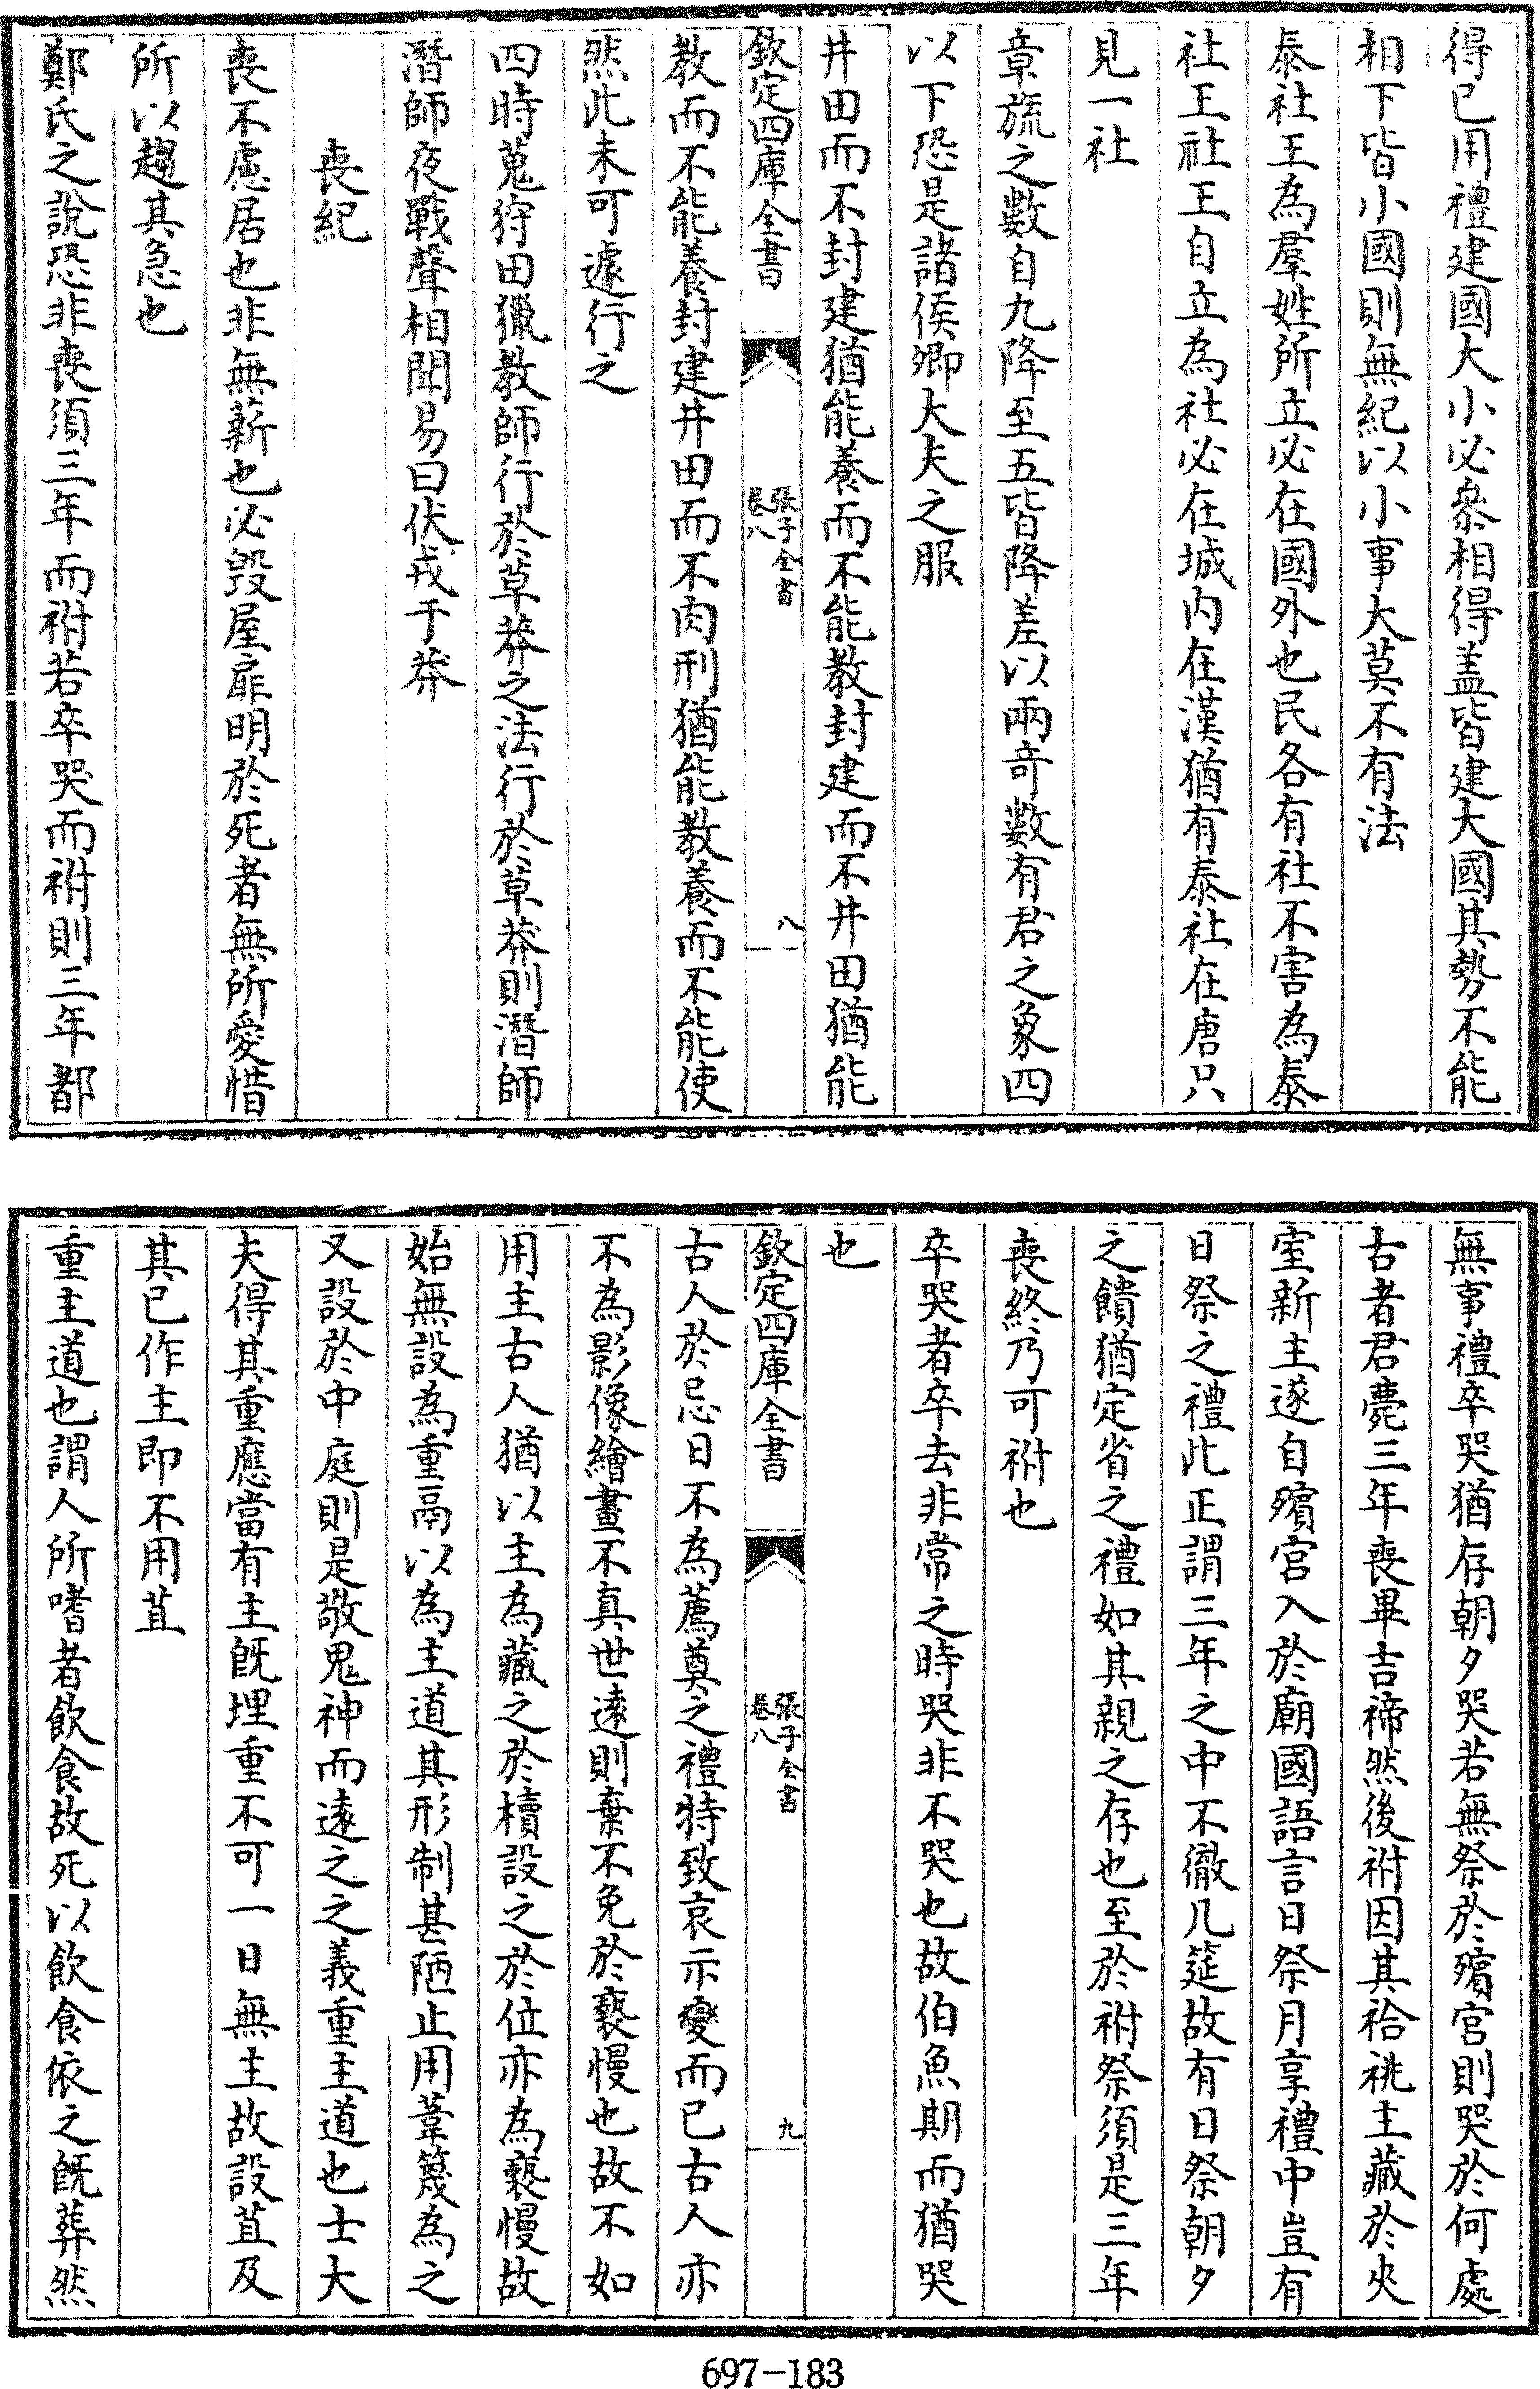 得已用禮建國大小必參相得蓋皆建大國其勢不能
相下皆小國則無紀以小事大莫不有法
泰社王為羣姓所立必在國外也民各有社不害為泰
社王社王自立為社必在城内在漢猶有泰社在唐只
見一社
章旒之數自九降至五皆降差以兩竒數有君之象四
以下恐是諸侯卿大夫之服
井田而不封建猶能養而不能教封建而不井田猶能
欽定四庫全書
張子全書
卷八
八
教而不能養封建井田而不肉刑猶能教養而不能使
然此未可遽行之
四時蒐狩田獵教師行於草莽之法行於草莽則潛師
潛師夜戰聲相聞易曰伏戎于莽
喪紀
喪不慮居也非無薪也必毀屋扉明於死者無所愛惜
所以趨其急也
鄭氏之說恐非喪須三年而祔若卒哭而祔則三年都
無事禮卒哭猶存朝夕哭若無祭於殯宫則哭於何處
古者君薨三年喪畢吉禘然後祔因其祫祧主藏於夾
室新主遂自殯宫入於廟國語言日祭月享禮中豈有
日祭之禮此正謂三年之中不徹几筵故有日祭朝夕
之饋猶定省之禮如其親之存也至於祔祭須是三年
喪終乃可祔也
卒哭者卒去非常之時哭非不哭也故伯魚期而猶哭
也
欽定四庫全書
張子全書
卷八
九
古人於忌日不為薦奠之禮特致哀示變而已古人亦
不為影像繪畫不真世遠則棄不免於褻慢也故不如
用主古人猶以主為藏之於櫝設之於位亦為褻慢故
始無設為重鬲以為主道其形制甚陋止用葦篾為之
又設於中庭則是敬鬼神而遠之之義重主道也士大
夫得其重應當有主既埋重不可一日無主故設苴及
其已作主即不用苴
重主道也謂人所嗜者飲食故死以飲食依之既葬然
697-183